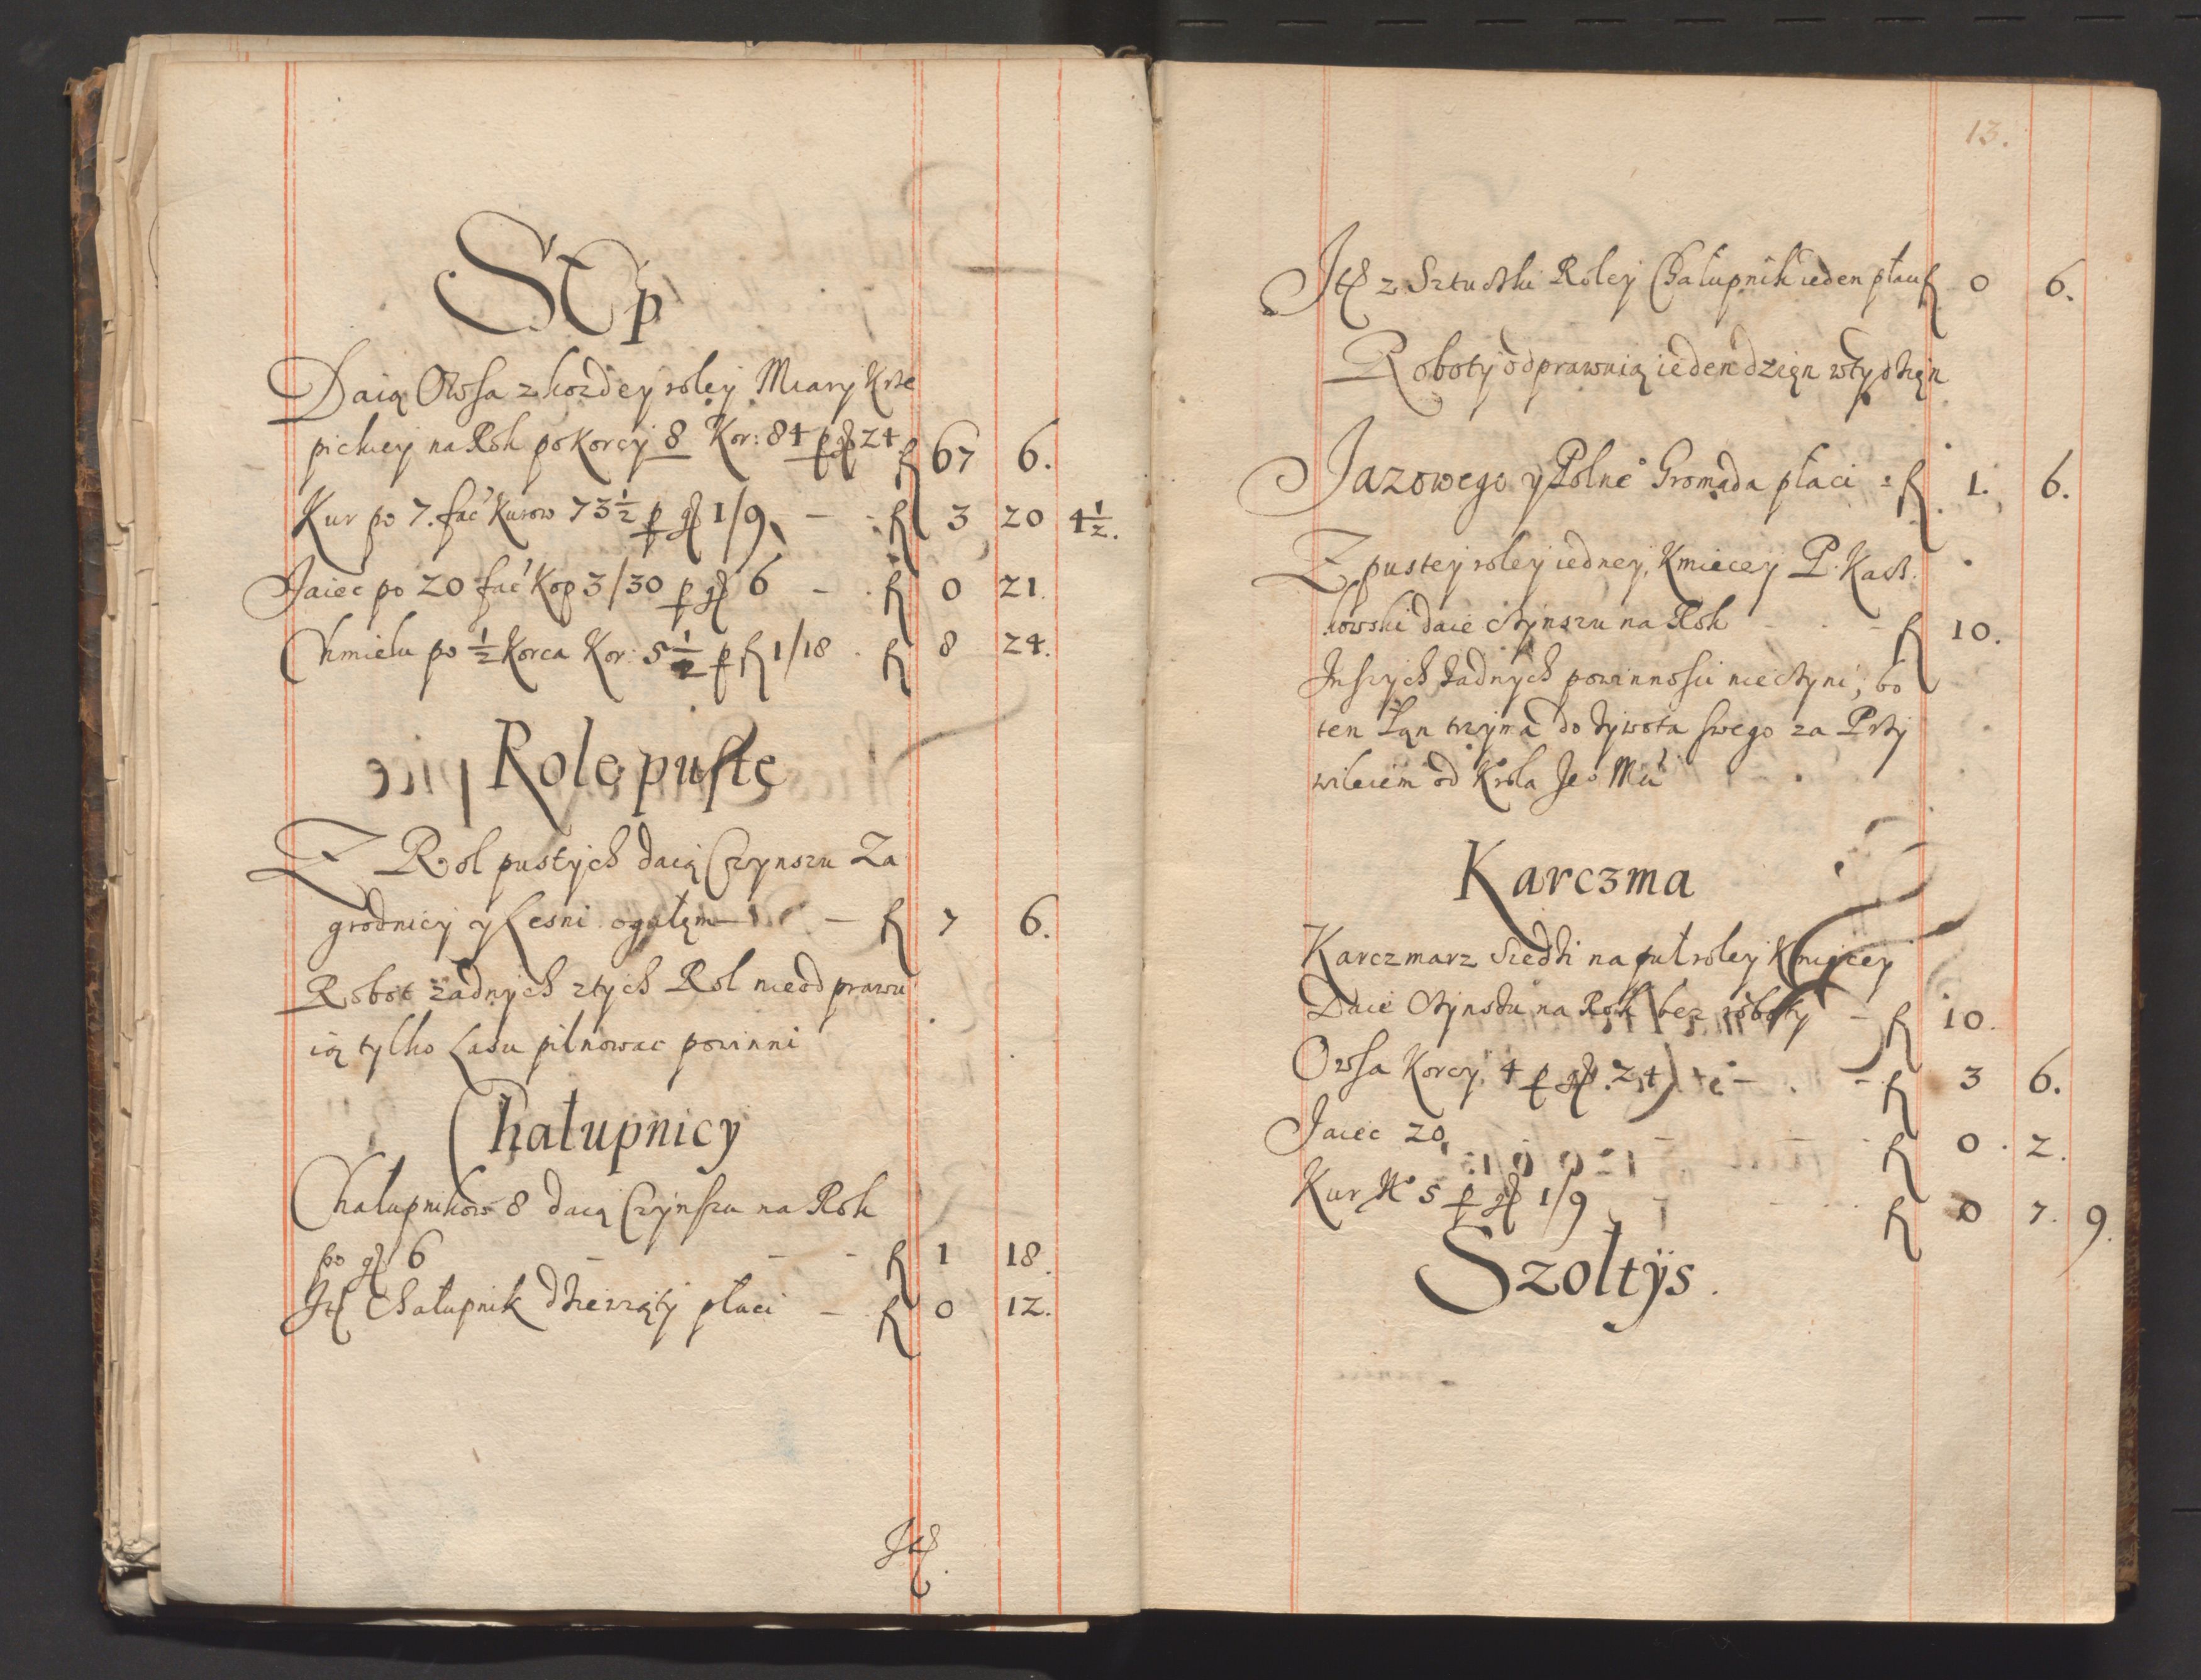 Sęp
Daią Owsa z kozdey roley Miary Krze
pickiey na Rok po Korcy 8 Kor: 84 p gr 24 fl 67 6.
Kur po 7. fać Kurow 73½ p gr 1/9 – – fl 3 20 4½.
Jaiec po 20 fać Kop 3/30 p gr 6 – fl 0 21.
Chmielu po ½ Korca Kor: 5½ p fl 1/18 . fl 8 24.
Role puste
Z Rol pustych daią Czynszu Za
grodnicy y Lesni ogułem – – fl 7 6.
Robot zadnych z tych Rol nie odprawu
ią tylko Lasu pilnowac powinni
Chałupnicy
Chałupnikow 8 daią Czynszu na Rok
po gr 6 – – – fl 1 18.
Itê Chałupnik dziewiąty płaci – fl 0 12.
Itê.
13.
Itê z Sztuczki Roley Chałupnik ieden płaci fl 0 6.
Roboty odprawuią ieden dzięn w tydzięn
Jazowego y Polne° Gromada płaci : fl 1. 6.
Z pustey roley iedney, Kmiecey P. Kasz.
kowski daie Czynszu na Rok – – fl 10.
Inszych żadnych powinnosci nie czyni, bo
ten Łąn trzyma do żywota swego za Przy
wileiem od Krola Je° Mci
Karczma
Karczmarz siedzi na puł roley Kmięcey
Daie Czynszu na Rok bez roboty – fl 10.
Owsa Korcy 4 p gr. 24 – . – fl 3 6.
Jaiec 20, – – fl 0. 2.
Kur N° 5 p gr 1/9 – fl 0 7. 9.
Szołtÿs.